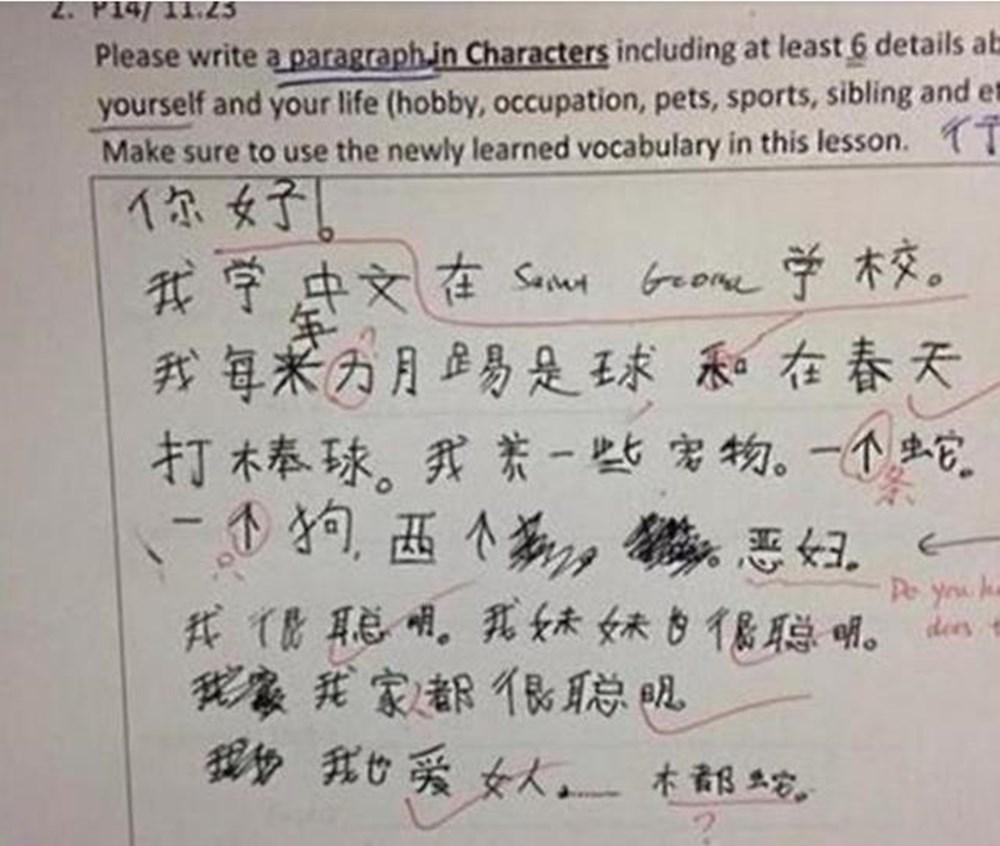 2. P14/ 11.23
Please write a paragraph in Characters including at least 6 details ab
yourself and your life (hobby, occupation, pets, sports, sibling and et
Make sure to use the newly learned vocabulary in this lesson.
你好!
我学中文在 Saint George 学校。
年
我每来 ? 月踢是球和在春天
打棒球。我养一些宠物。一个蛇。
条
一个狗, 两个 。恶妇。
只
Do you h
does t
我很聪明。我妹妹也很聪明。
我家人都很聪明。
我也爱女人。
都蛇。
?